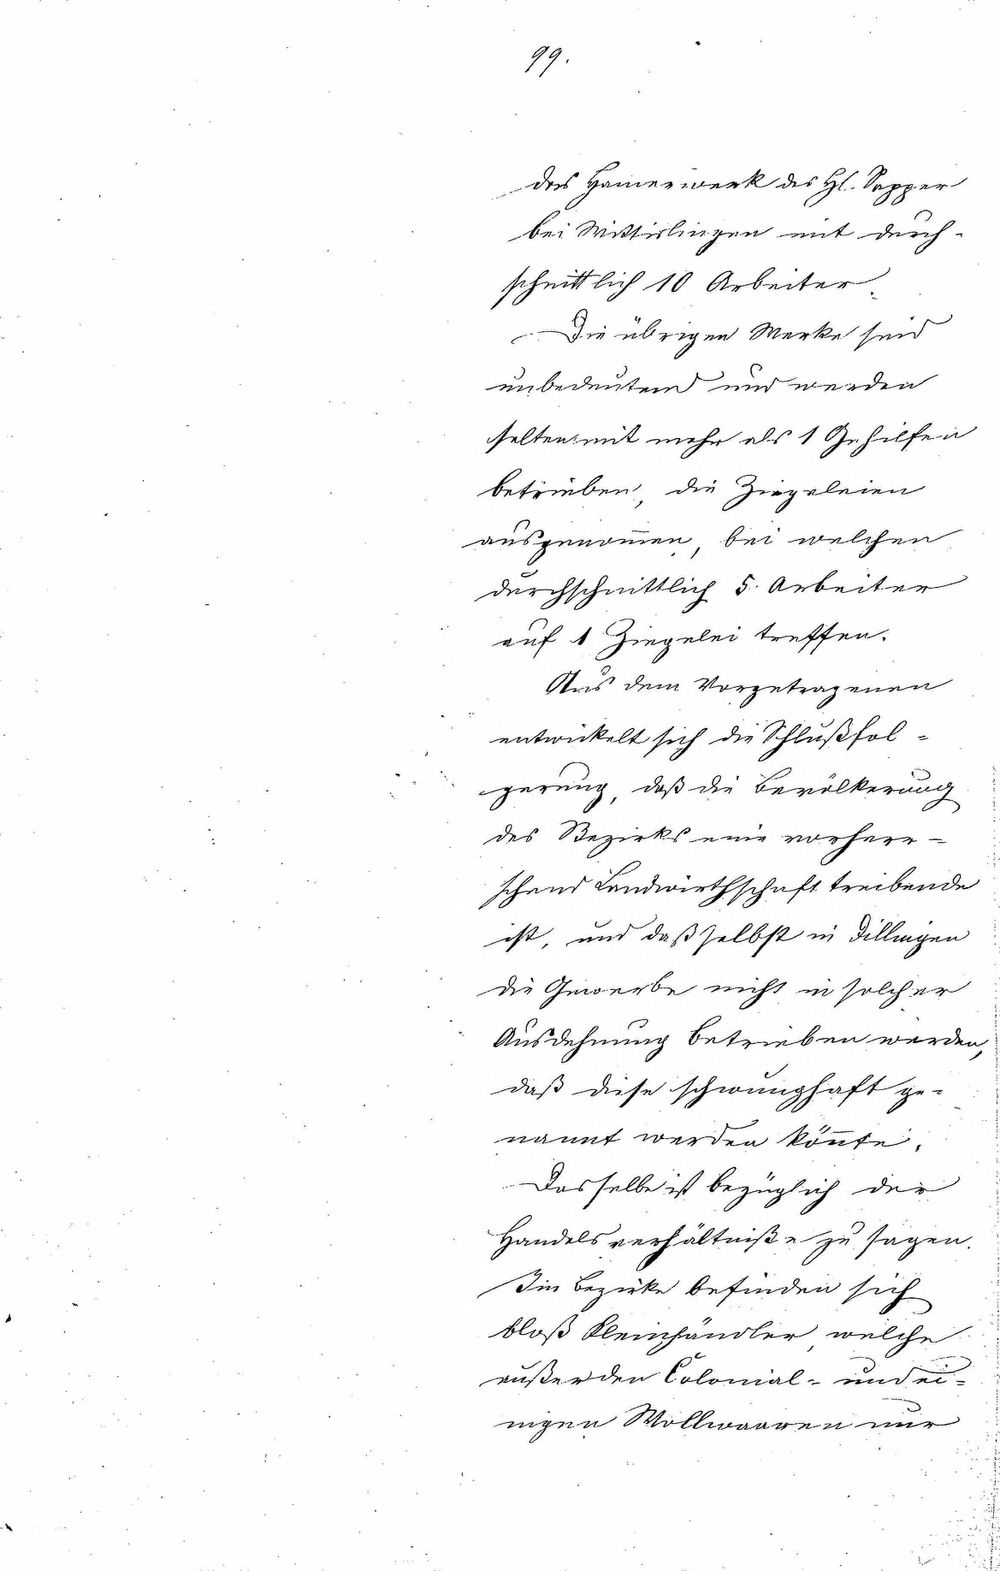 99.
das Ham̄erwerk des Hl. Sapper
bei Wittislingen mit durch-
schnittlich 10 Arbeiter.
Die übrigen Werke sind
unbedeutend und werden
selten mit mehr als 1 Gehilfen
betrieben, die Ziegeleien
ausgenom̄en, bei welchen
durchschnittlich 5 Arbeiter
auf 1 Ziegelei treffen.
Aus dem Vorgetragenen
entwickelt sich die Schlußfol-
gerung, daß die Bevölkerung
des Bezirks eine vorherr-
schend Landwirthschaft treibende
ist, und daß selbst in Dillingen
die Gewerbe nicht in solcher
Ausdehnung betrieben werden,
daß diese schwunghaft ge-
nannt werden kön̄te.
Dasselbe ist bezüglich der
Handelsverhältniße zu sagen.
Im Bezirke befinden sich
bloß Kleinhändler, welche
außer den Colonial- und ei-
nigen Wollwaaren nur